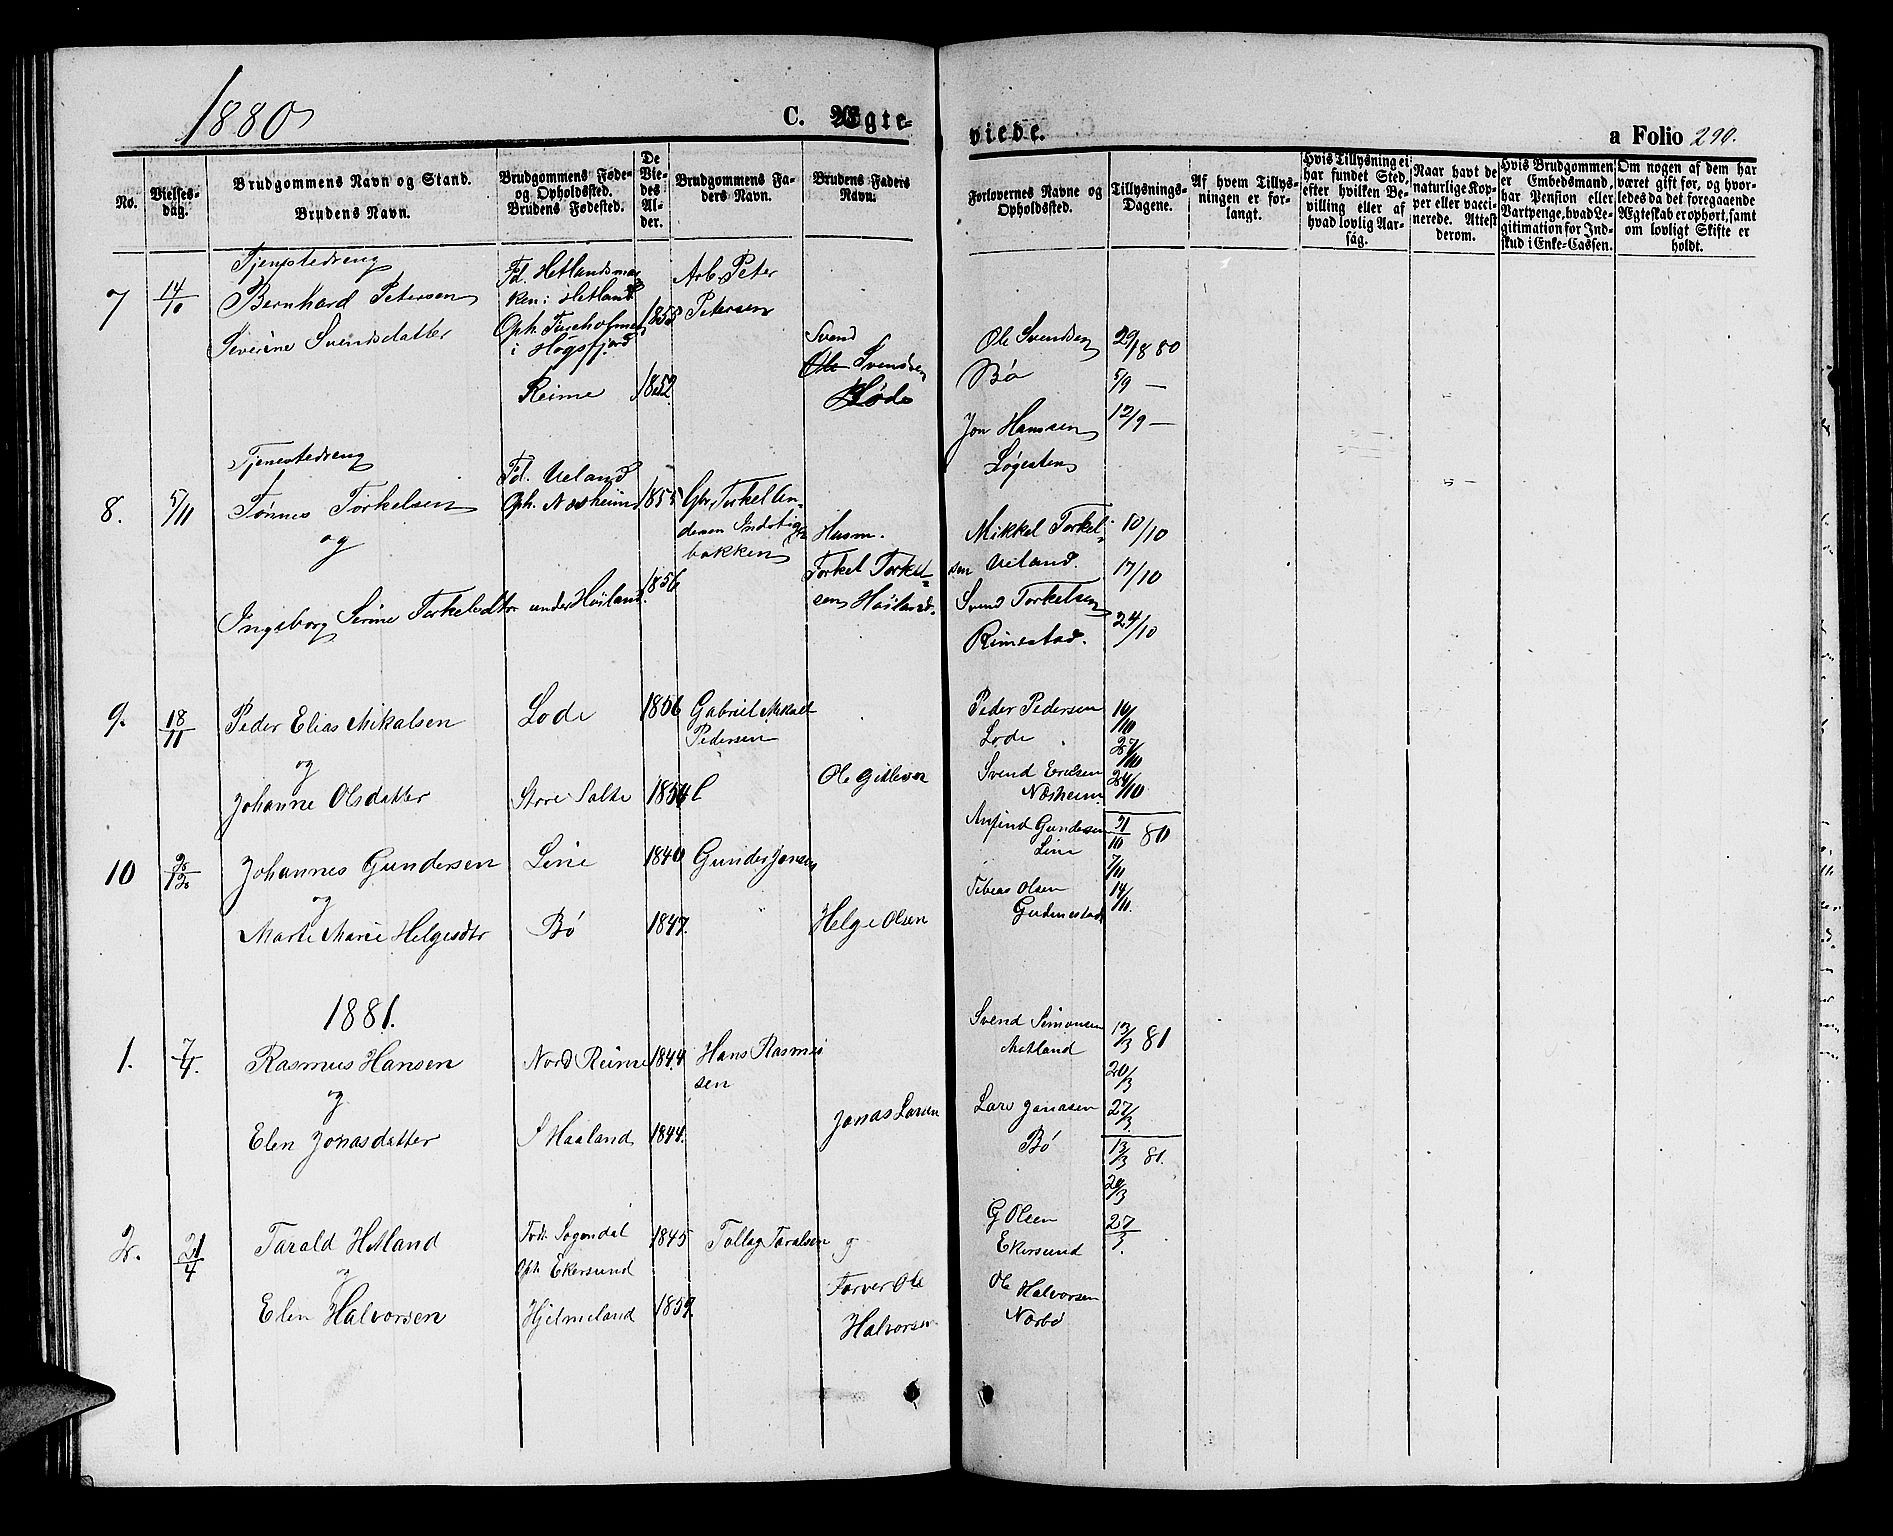 1880
C. Ægte-
viede.
a Folio 290.
No.
Vielses-
dag.
Brudgommens Navn og Stand.
Brudens Navn.
Brudgommens Føde-
og Opholdssted.
Brudens Fødested.
De
Vie-
des
Al-
der.
Brudgommens Fa-
ders Navn.
Brudens Faders
Navn.
Forlovernes Navne og
Opholdssted.
Tillysnings-
Dagene.
Af hvem Tillys-
ningen er for-
langt.
Hvis Tillysning ei
har fundet Sted,
efter hvilken Be-
villing eller af
hvad lovlig Aar-
sag.
Naar havt de
naturlige Kop-
per eller vacci-
nerede. Attest
derom.
Hvis Brudgommen
er Embedsmand,
har Pension eller
Vartpenge, hvad Le-
gitimation for Ind-
skud i Enke-Cassen.
Om nogen af dem har
været gift før, og hvor-
ledes da det foregaaende
Ægteskab er ophørt, samt
om lovligt Skifte er
holdt.
7
14/10
Tjenestedreng
Bernhard Petersen
Severine Svendsdatter
Fd. Hetlandsmar
ken i Hetland
Oph.
i Høgsfjord
Reime
1855
1852
Arb. Peter
Petersen
Svend
Ole Svendsen
Høde
Ole Svendsen
Bø
Jon Hansen
Søgesten
29/8 80
5/9 —
12/9 —
8.
5/11
Tjenestedreng
Tønnes Torkelsen
og
Ingeborg Serine Torkelsdtr
Fd. Ueland
Oph. Næsheim
under Høiland
1855
1856
Gbr. Torkel An-
bakken
Husm.
Torkel Torkel-
sen Høiland.
Mikkel Torkel-
sen Ueland.
Svend Torkelsen
Rimestad.
10/10
17/10
24/10
9.
18/11
Peder Elias Mikalsen
og
Johanne Olsdatter
Lode
Store Salte
1856
1854
Gabriel Mikael
Pedersen
Ole Gitlesen
Peder Pedersen
Lode
Svend Erelsen
Næsheim
10/10
24/10
10
Johannes Gundersen
og
Marte Marie Helgesdtr
Line
Bø
1840
1847.
Gunder Jonsen
Helge Olsen
Anfind Gundersen
Line
Tobias Olsen
Gudmestad
31/10 80
7/11
14/11.
1881.
1.
7/4.
Rasmus Hansen
og
Elen Jonasdatter
Nord Reime
S Haaland
1844
1844.
Hans Rasmus
sen
Jonas Larsen
Svend Simonsen
Motland
Lars Jonasen
Bø
13/3 81
20/3
27/3
2.
21/4
Tarald Hetland
og
Elen Halvorsen
Fød. Sogendal
Oph. Ekersund
Hjelmeland
1845
1859.
Tollag Taralsen
Farver Ole
Halvorsen
G Olsen
Ekersund
Ole Halvorsen
Nærbø
13/3 81.
20/3
27/3.